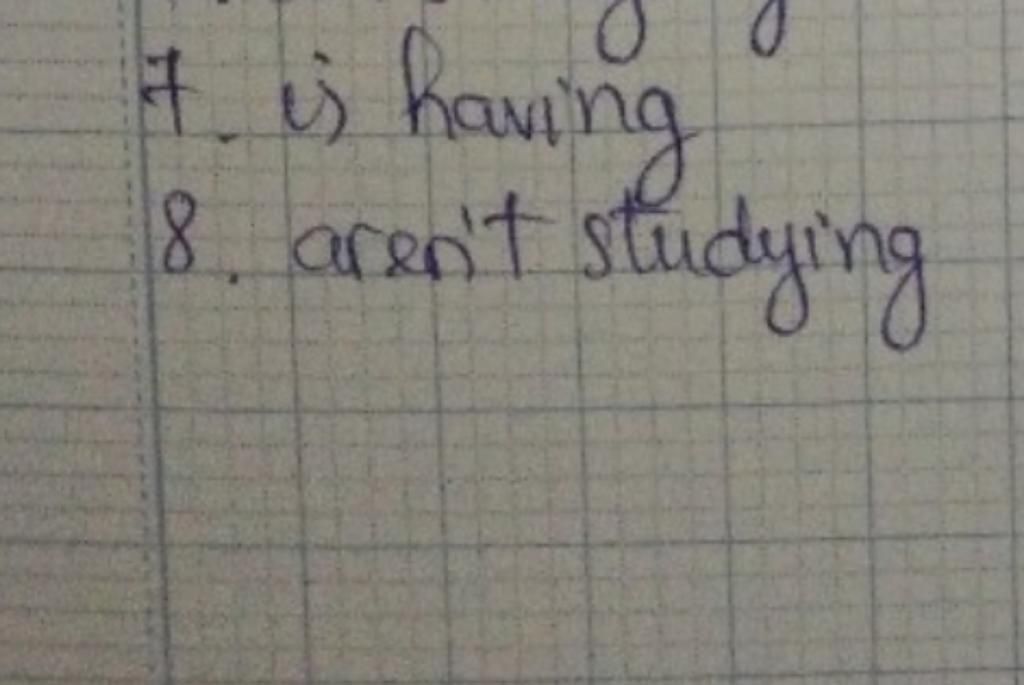 7. is having
8. aren't studying